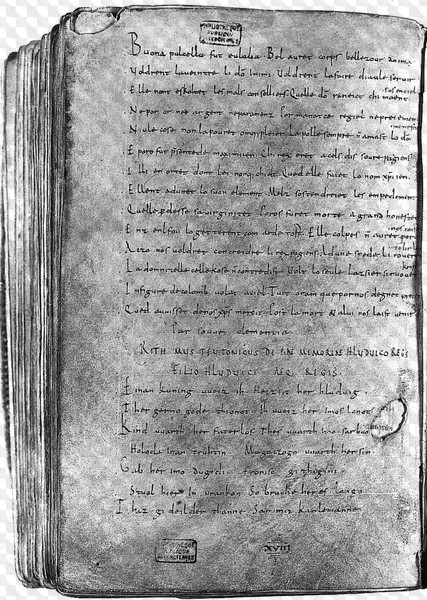 Buona pulcella fut eulalia. Bel auret corps bellezour anima
Voldrent laueintre li dō Inimi. Voldrent lafaire diaule seruir
Elle nont eskoltet les mals conselliers. Quelle dō raneiet chi maent
sus enciel
Ne por or ned argent neparamenz. Por manatce regiel nepreiement
Niule cose non lapouret omqi pleier. La polle sempre n amast lo dō
E poro fut psentede maximiien. Chi rex eret acels dis soure pagiens
Il li enortet dont lei nonq chielt. Qued elle fuiet lo nom xpiien
Ellent adunet lo suon element. Melz sostendreiet les empedementz
Quelle pdesse sa uirginitet. Poros furet morte a grand honestet
Enz enl fou lagetterent com arde tost. Elle colpes n auret poro
nos coist
Aezo nos uoldret concreidre li rex pagiens. Ad une spede li roueret
La domnizelle celle kose n contredist. Volt lo seule lazsier si ruouet
krist
In figure decolomb uolat aciel. Tuit oram que por nos degnet preier
Qued auuisset denos xps mercit. Post la mort & alui nos laist uenir
Par souue clementia.
RITHMUS TEUTONICUS DE PIAE MEMORIAE HLUDUICO REGE
FILIO HLUDUICI AEQ; REGIS.
Einan kuning uueiz ih. Heizsit her hluduig.
Ther gerno gode thionot. Ih uueiz her imos lonot.
Kind uuarth her faterlos. Thes uuarth imo sar buoz.
Holoda inan truhtin. Magaczogo uuarth her sin.
Gab her imo dugidi. Fronisc githigini.
Stual hier in urankon. So bruche her es lango.
Thaz gideilder thanne. Sar mit karlemanne.
XVIII